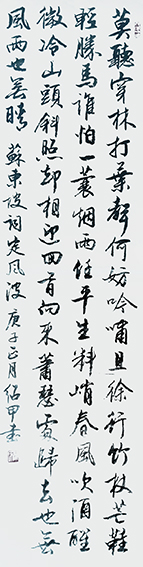 莫聽穿林打葉聲何妨吟嘯且徐行竹杖芒鞋
輕勝馬誰怕一蓑烟雨任平生料峭春風吹酒醒
微冷山頭斜照却相迎回首向來蕭瑟處歸去也無
風雨也無晴 蘇東坡詞定風波 庚子正月紹甲書